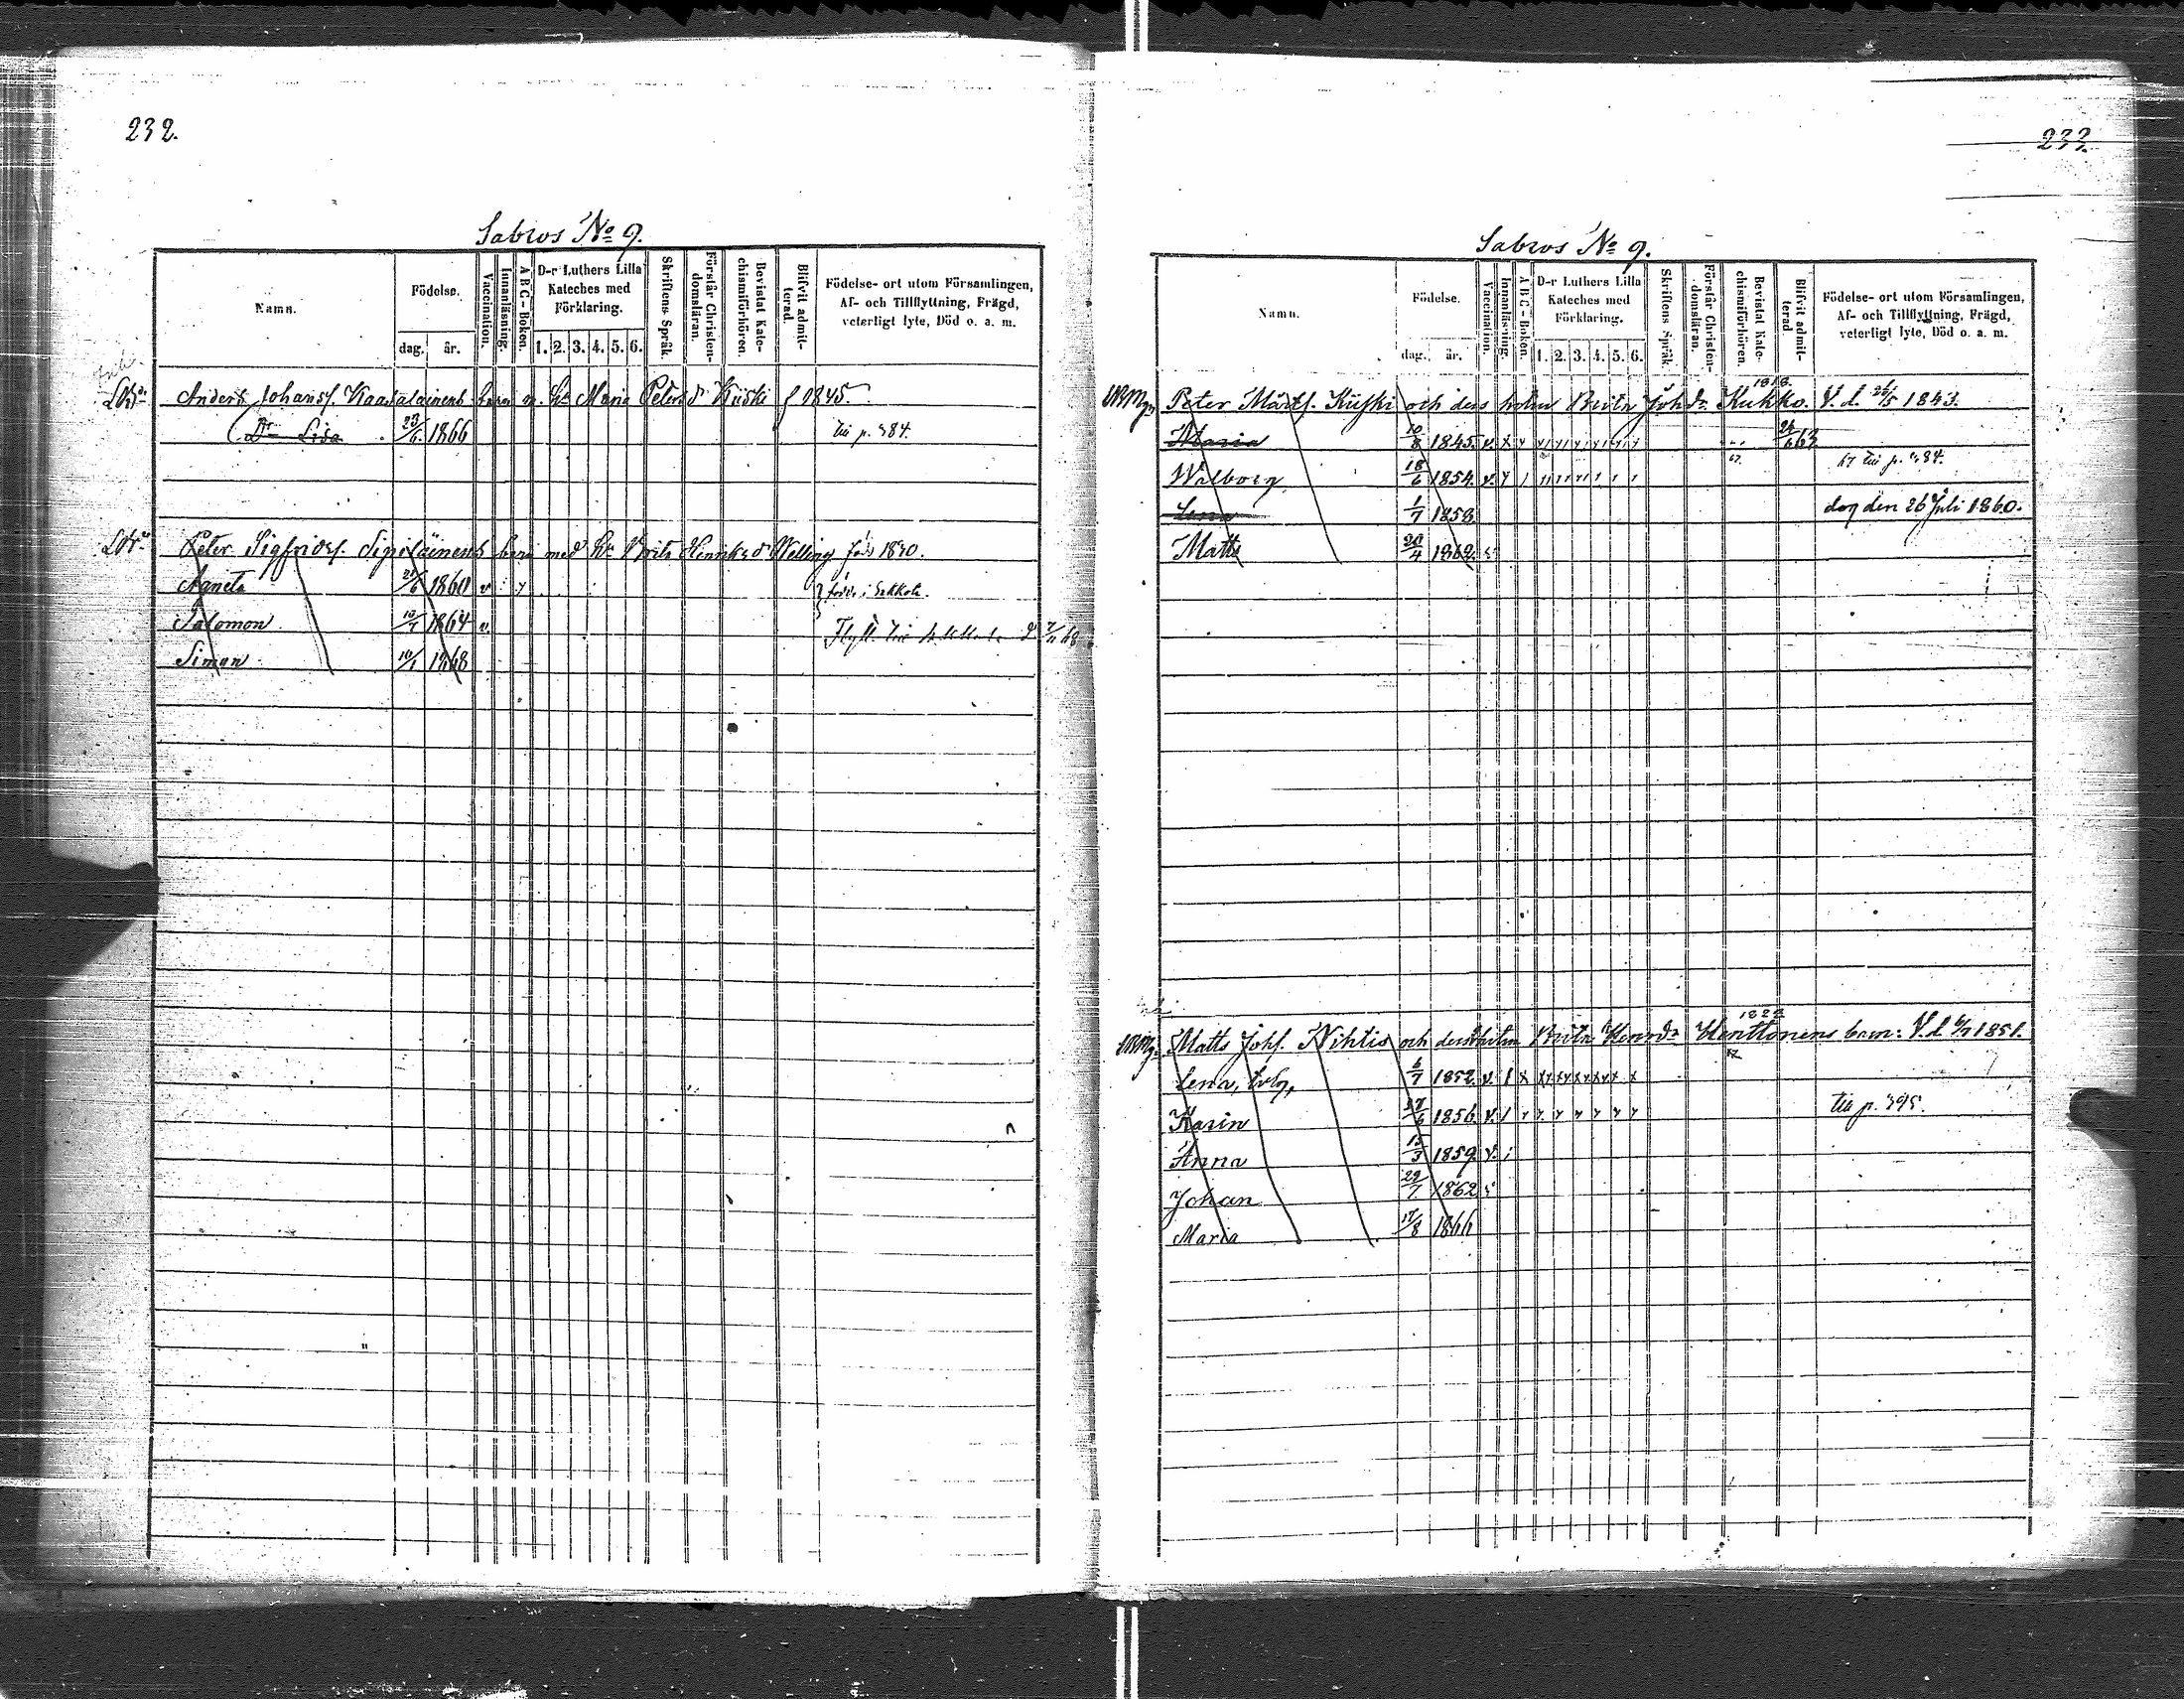 232.
Sabros No 9.
Namn.
Födelse.
dag. år.
Vaccination.
Innanläsning.
A B C - Boken.
D-r Luthers Lilla Kateches med Förklaring.
1. 2. 3. 4. 5. 6.
Skriftens Språk.
Förstår Christendomsläran.
Bevistat Katechismiförhören.
Blifvit admitterad.
Födelse- ort utom Församlingen, Af- och Tillflyttning, Frägd, veterligt lyte, Död o. a. m.
Anders Johans. Maria Peters dr Kiiski f 1845
Dr Lisa 23/6 1866 till p. 384.
Peter Sigfrids. Sipiläinens barn med Brita Henriks dr Welling född 1830.
Agneta 21/6 1860 v
Salomon 10/7 1864 v. Flytt.
Simon 10/1 1868
233.
Sabros No 9.
Namn.
Födelse.
dag. år.
Vaccination.
Innanläsning.
A B C - Boken.
D-r Luthers Lilla Kateches med Förklaring.
1. 2. 3. 4. 5. 6.
Skriftens Språk.
Förstår Christendomsläran.
Bevistat Katechismiförhören.
Blifvit admitterad
Födelse- ort utom Församlingen, Af- och Tillflyttning, Frägd, veterligt lyte, Död o. a. m.
1818.
Peter Mårts. Kiiski och dess hustru Brita Joh dr Kukko. V. d. 26/5 1843.
Maria 10/8 1845. v. 24/6 63
Walborg 18/6 1854. v. 67 till p. 384.
Lena 1/7 1858 dog den 26 Juli 1860.
Matts 20/4 1862.
Matts Johs. Nihtis och dess hustru Brita Henr dr Henttonens barn: V. d. 1851.
Lena, 6/7 1852. v.
Karin 27/6 1856. v. till p. 395.
Anna 15/3 1859. v.
Johan 29/7 1862
Maria 17/8 1866